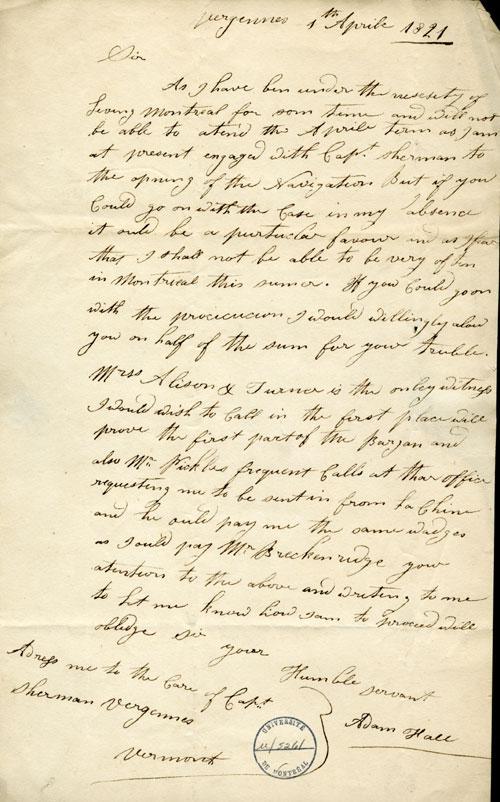 Vergennes 1th Aprile 1821
Sir
As I have ben under the nesesity of
Leving Montreal for som time and will not
be able to atend the Aprile term as I am
at present engaged with Capt. Sherman to
the opning of the Navigation But if you
Could go on with the Case in my absence
it ould be a purticular favour and as I fear
that I shall not be able to be very often
in Montreal this sumer. If you Could go on
with the procicucion I would willingly alow
you on half of the sum for your truble.
Mrss Alison & Turner is the onley witness
I would wish to Call in the first place will
prove the first part of the Bargan and
also Mr. Pickles frequent Calls at thar office
requesting me to be sent in from La Chine
and he ould pay me the same wadges
as I ould pay Mr Breckenridge your
atention to the above and writing to me
to let me know how I am to proceed will
obledge sir
your
Humble servant
Adam Hall
Adress me to the Care of Capt
Sherman Vergennes
Vermont
UNIVERSITÉ
DE MONTRÉAL